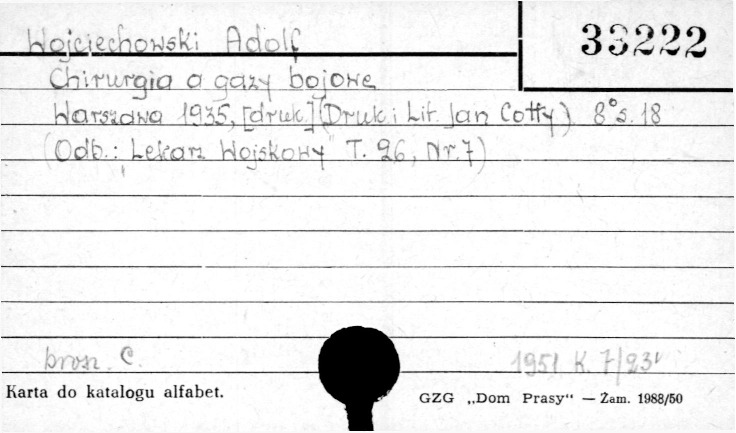 Wojciechowski Adolf
33222
Chirurgia a gazy bojowe
Warszawa 1935, [druk.] (Druk i Lit. Jan Cotty) 8° s. 18
(Odb.: "Lekarz Wojskowy" T. 26, Nr. 7)
brosz. C.
1951 K. 7/231
Karta do katalogu alfabet.
GZG „Dom Prasy" — Zam. 1988/50